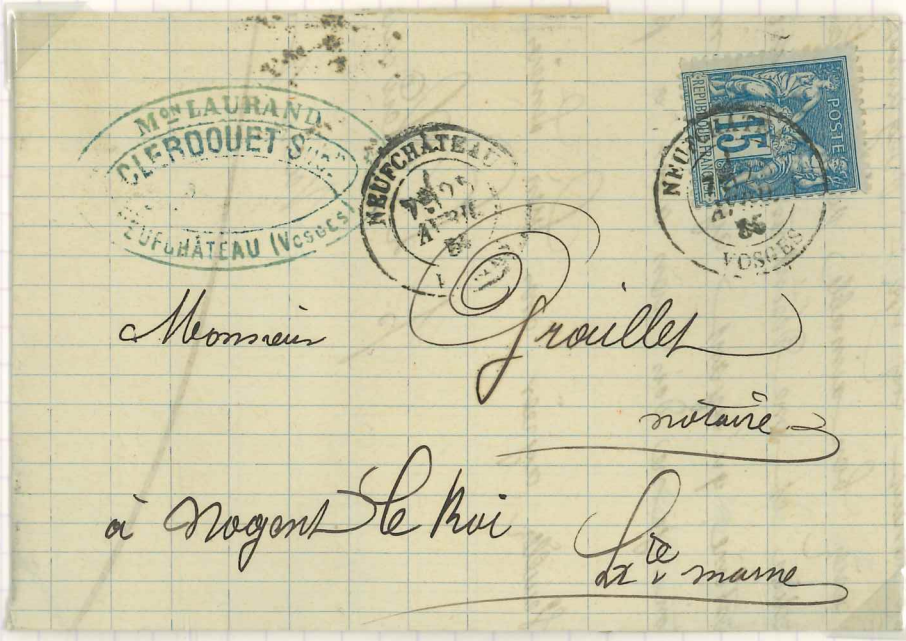 Mon LAURAND
CLERDOUET Succr
NEUFCHÂTEAU (VOSGES)
NEUFCHÂTEAU
25
AVRIL
REPUBLIQUE FRANCAISE
POSTE
15
VOSGES
Monsieur Graillet
notaire
à Nogent le Roi
Hte marne